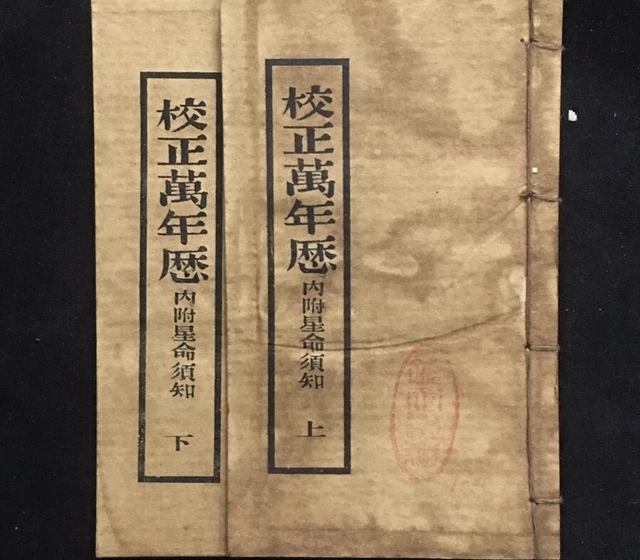 校正萬年厯內附星命須知 上
校正萬年厯內附星命須知 下